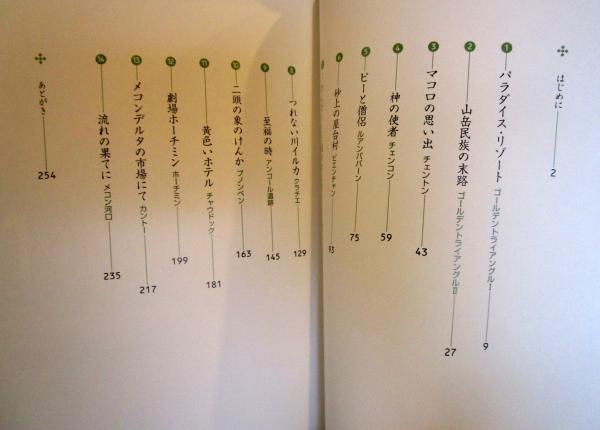 はじめに 2
1 パラダイス・リゾート ゴールデントライアングルI 9
2 山岳民族の末路 ゴールデントライアングルII 27
3 マコロの思い出 チェントン 43
4 神の使者 チェンコン 59
5 ピーと僧侶 ルアンパバーン 75
6 砂上の屋台村 ビエンチャン 93
8 つれない川イルカ クラチエ 129
9 至福の時 アンコール遺跡 145
10 二頭の象のけんか プノンペン 163
11 黄色いホテル チャウドック 181
12 劇場ホーチミン ホーチミン 199
13 メコンデルタの市場にて カントー 217
14 流れの果てに メコン河口 235
あとがき 254